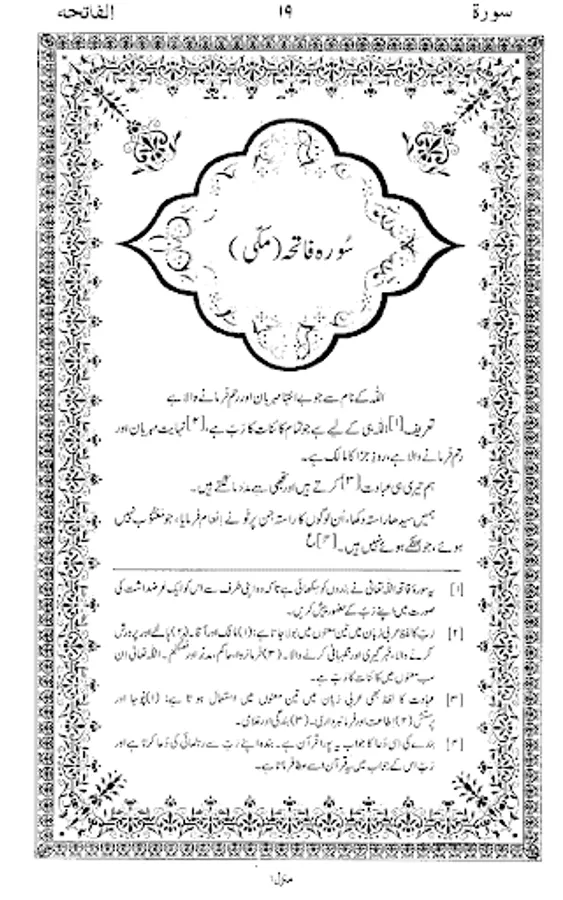 سورة
۱۹
الفاتحہ
سُورہ فاتحہ (مکّی)
اللہ کے نام سے جو بے انتہا مہربان اور رحم فرمانے والا ہے
تعریف[۱] اللہ ہی کے لیے ہے جو تمام کائنات کا رَبّ ہے،[۲] نہایت مہربان اور
رحم فرمانے والا ہے، روزِ جزا کا مالک ہے۔
ہم تیری ہی عبادت[۳] کرتے ہیں اور تجھی سے مدد مانگتے ہیں۔
ہمیں سیدھا راستہ دکھا، اُن لوگوں کا راستہ جن پر تُو نے اِنعام فرمایا، جو معتوب نہیں
ہوئے، جو بھٹکے ہوئے نہیں ہیں۔[۴] ع
[۱] یہ سورۂ فاتحہ اللہ تعالیٰ نے بندوں کو سکھائی ہے تاکہ وہ اپنی طرف سے اس کو ایک عرضداشت کی
صورت میں اپنے رَبّ کے حضور پیش کریں۔
[۲] ربّ کا لفظ عربی زبان میں تین معنوں میں بولا جاتا ہے: (۱) مالک اور آقا۔ (۲) پالنے اور پرورش
کرنے والا، خبر گیری اور نگہبانی کرنے والا۔ (۳) فرمانروا، حاکم، مدبّر اور منتظم۔ اللہ تعالیٰ ان
سب معنوں میں کائنات کا رَبّ ہے۔
[۳] عبادت کا لفظ بھی عربی زبان میں تین معنوں میں استعمال ہوتا ہے: (۱) پوجا اور
پرستش (۲) اطاعت اور فرمانبرداری۔ (۳) بندگی اور غلامی۔
[۴] بندے کی اِسی دُعا کا جواب یہ پورا قرآن ہے۔ بندہ اپنے رَبّ سے رہنمائی کی دُعا کرتا ہے اور
رَبّ اس کے جواب میں یہ قرآن اسے عطا فرماتا ہے۔
منزل ۱